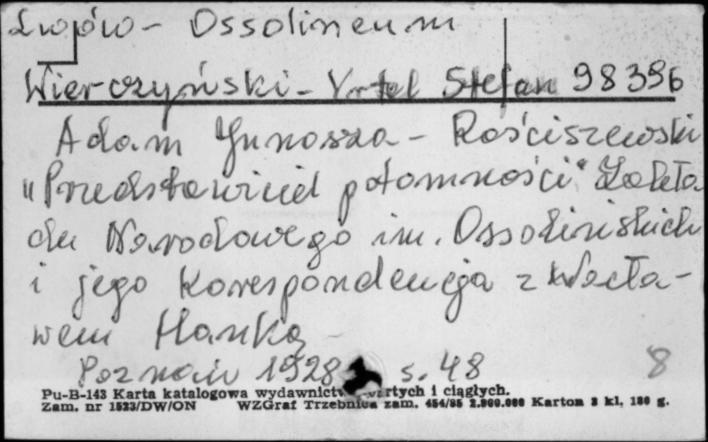 Lwów - Ossolineum
Wierczyński - Vrtel Stefan 98396
Adam Junosza - Rościszewski
"Przedstawiciel potomności" Zakła-
du Narodowego im. Ossolińskich
i jego korespondencja z Wacła-
wem Hanką -
Poznań 1928 s. 48 8
Pu-B-143 Karta katalogowa wydawnictw zwartych i ciągłych.
Zam. nr 1523/DW/ON WZGraf Trzebnica zam. 454/85 2.000.000 Karton 3 kl. 180 g.